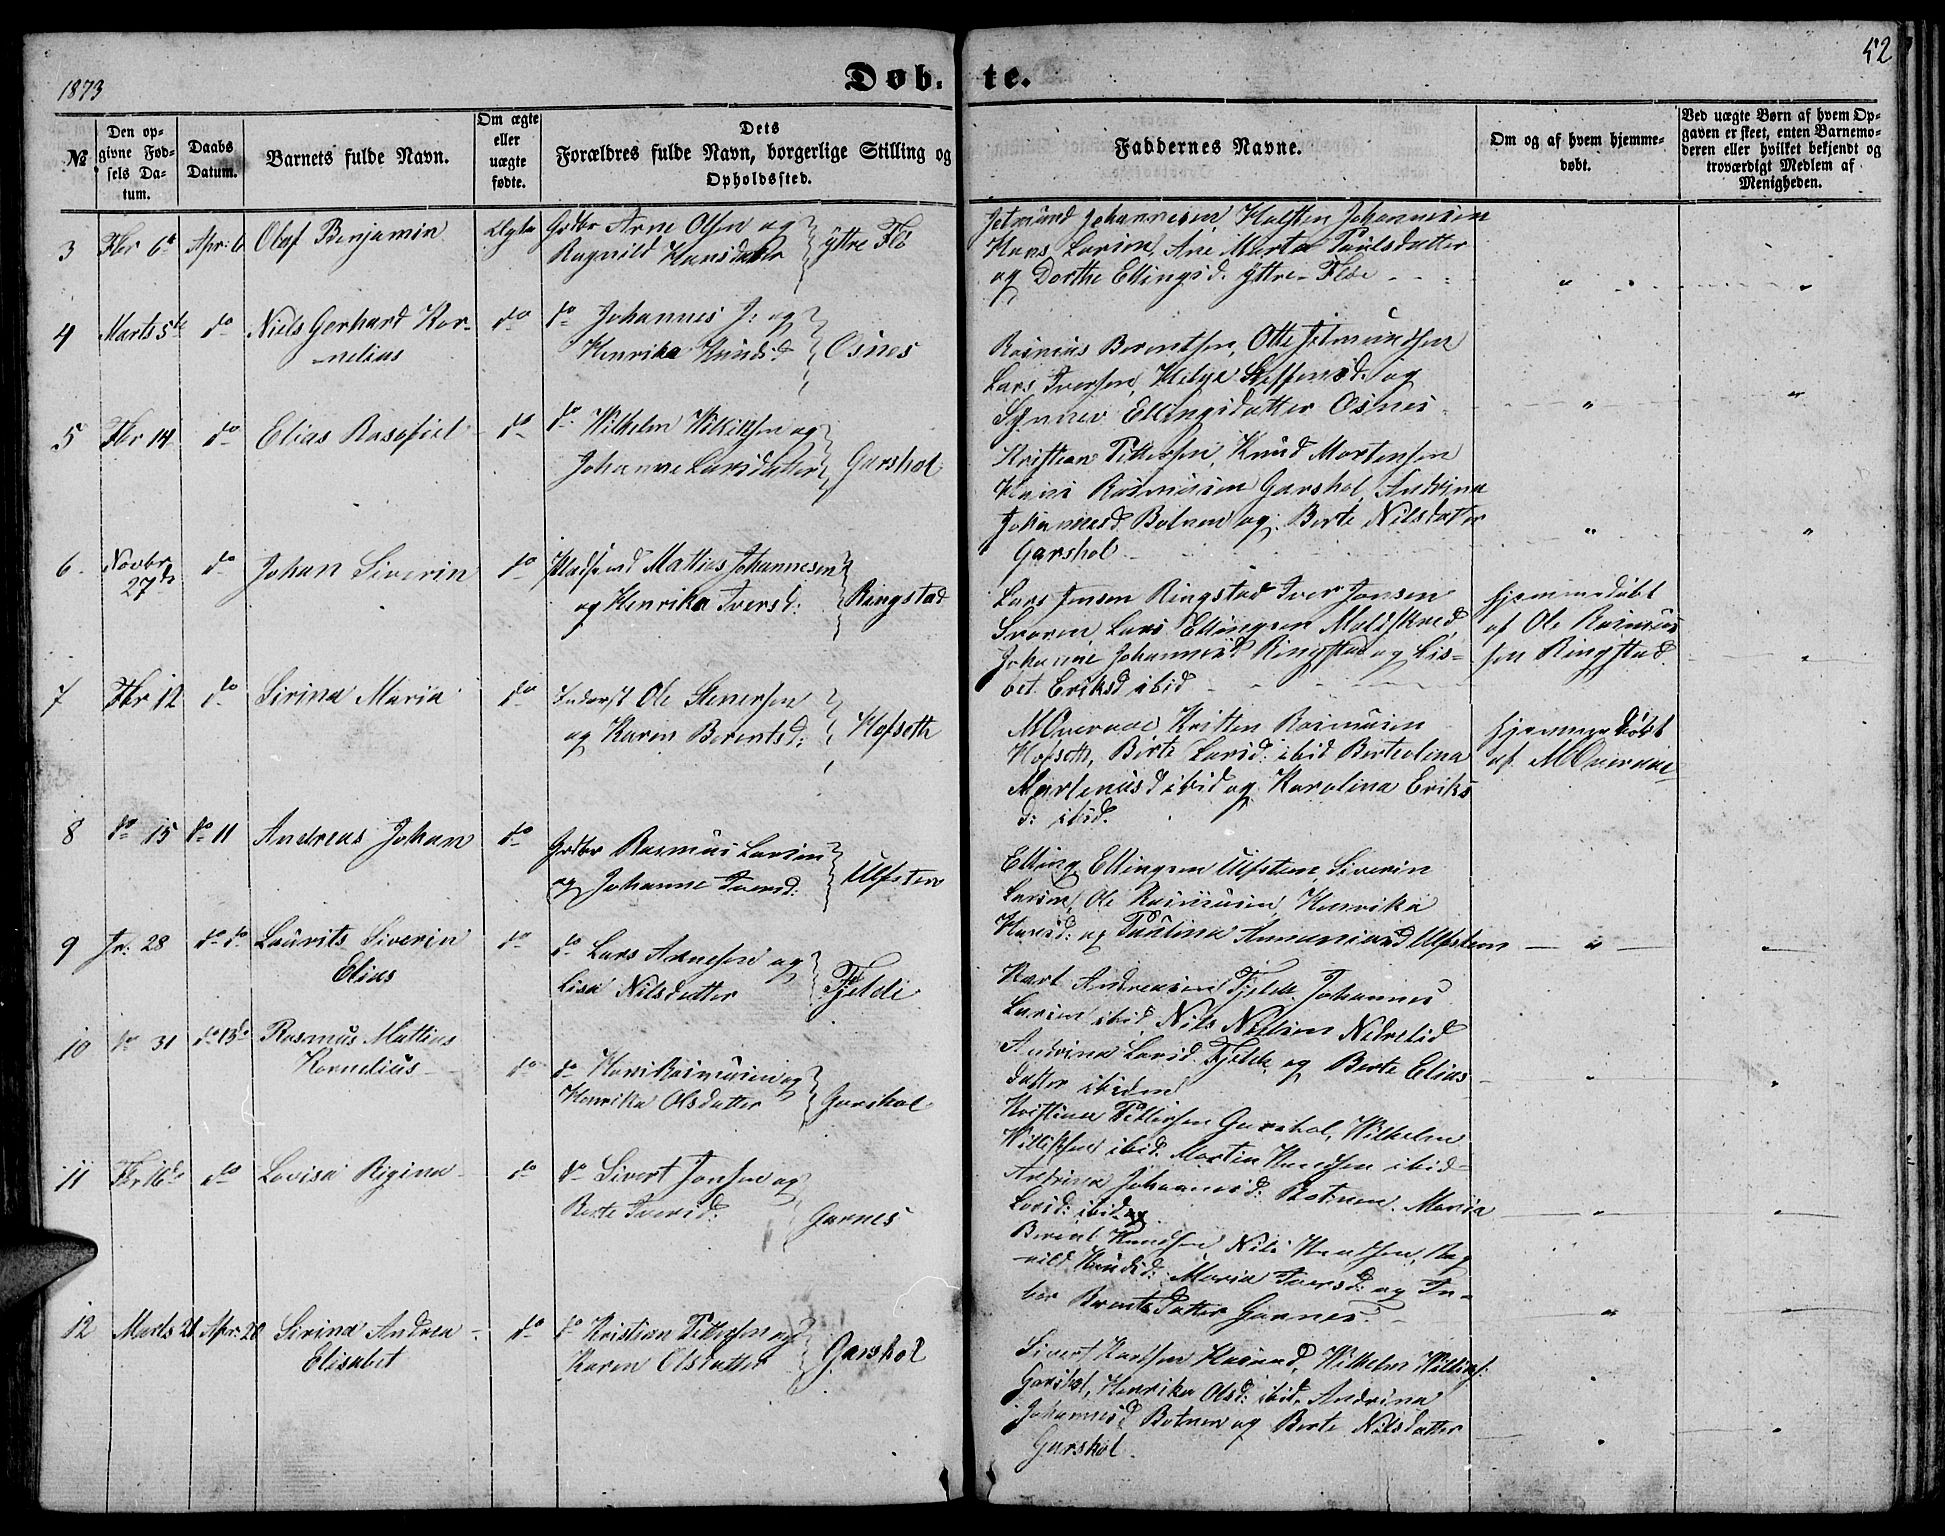 1873
Døb. te.
52
№
Den op-
givne Fød-
sels Da-
tum.
Daabs
Datum.
Barnets fulde Navn.
Om ægte
eller
uægte
fødte.
Dets
Forældres fulde Navn, borgerlige Stilling og
Opholdssted.
Faddernes Navne.
Om og af hvem hjemme-
døbt.
Ved uægte Børn af hvem Op-
gaven er skeet, enten Barnemo-
deren eller hvilket bekjendt og
troværdigt Medlem af
Menigheden.
3 Fbr 6te Apr: 6 Olaf Benjamin Ægte Grdbr Arne Olsen og
Ragnild Hansdatter Yttre Flø
Jetmund Johannesen, Halsten Johannesen
Hans Larsen, Ane Marta Paulsdatter
og Dorthe Ellingsd. Yttre-Fløe
4 Marts 5te do Niels Gerhard Kor-
nelius do do Johannes J: og
Henrika Knudsd Osnes
Rasmus Berentsen, Otte Jetmundsen
Lars Iversen, Helge Steffensd: og
Synnev Ellingsdatter Osnes
5 Fbr 14 do Elias do do Wilhelm Willikssen og
Johanne Larsdatter Garshol
Kristian Pettersen, Knud Mortensen
Hans Rasmusen Garshol, Andrina
Johannesd. Botnen og Berte Nilsdatter
Garshol
6 Novbr
27de do Johan Siverin do Mattias Johannesen
og Henrika Iversd: Ringstad
Lars Jensen Ringstad Iver Jonsen
Lars Ellingsen
Johanne Johannesd Ringstad og Lis-
bet Eriksd ibid
hjemmedøbt
af Ole Rasmus
sen Ringstad
7 Fbr 12 do Sirina Maria do Inderst Ole Stenersen
og Karen Berentsd: Hofseth
Kristen Rasmusen
Hofseth, Birte Larsd: ibid Berteolina
Martinusd ibid og Karolina Eriks
d: ibid.
hjemmedøbt
af
8 do 15 do 11 Andreas Johan do Grdbr Rasmus Larsen
og Johanne Iversd: Ulfsten
Elling Ellingsen Ulfsten, Siverin
Larsen, Ole Rasmusen, Henrika
Hansd: og Paulina Ulfsten
9 Jr: 28 do do Laurits Siverin
Elias do do Lars Arnesen og
Lisa Nilsdatter Fjelde
Andreasen Fjelde, Johannes
Larsen ibid, Nils Nielsen
Andrina Larsd. Fjelde og Berte Elias
datter ibidem
10 do 31 do 13de Rasmus Mattias
Kornelius do do Hans Rasmusen og
Henrika Olsdatter Garshol
Kristian Pettersen Garshol, Wilhelm
Willikssen ibid. Martin Knudsen ibid
Andrina Johannesd: Botnen. Maria
Larsd: ibid
11 Fbr 16de do Lovisa Rigina do do Sivert Jonsen og
Berte Iversd: Garnes
Berent Knudsen Nils Knudsen, Rag
nild Knudsd: Maria Iversd: og In-
ber Brentsdatter Garnes.
12 Marts 21 Apr: 20 Sirina Andrea
Elisabet do do Kristian Pettersen og
Karen Olsdatter Garshol
Sivert Wilhelm
Garshol, Henrika Olsd: ibid. Andrina
Johannesd Botnen og Berte Nilsdatter
Garshol.